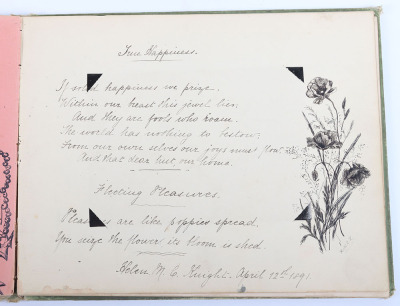 True Happiness.
If solid happiness we prize,
Within our breast this jewel lies,
And they are fools who roam.
The world has nothing to bestow;
From our own selves our joys must flow
And that dear hut, our home.
Fleeting Pleasures.
Pleasures are like poppies spread,
You seize the flower its bloom is shed
Helen M. C. Knight. April 13th 1891